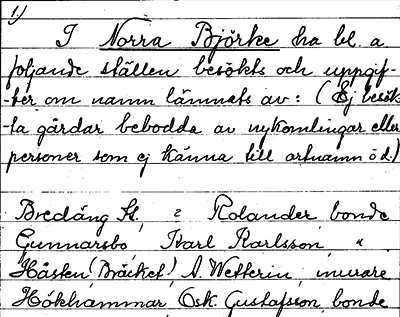 1)
I Norra Björke ha bl. a.
följande ställen besökts och uppgif-
-ter om namn lämnats av: (Ej besök-
ta gårdar bebodda av nykomlingar eller
personer som ej känna till ortnamn o d.)
Bredäng St, 2 Rolander bonde
Gunnarsbo, Karl Karlsson "
Håsten (Bräcket) A. Wetterin, murare
Hökhammar, Osk. Gustafsson, bonde